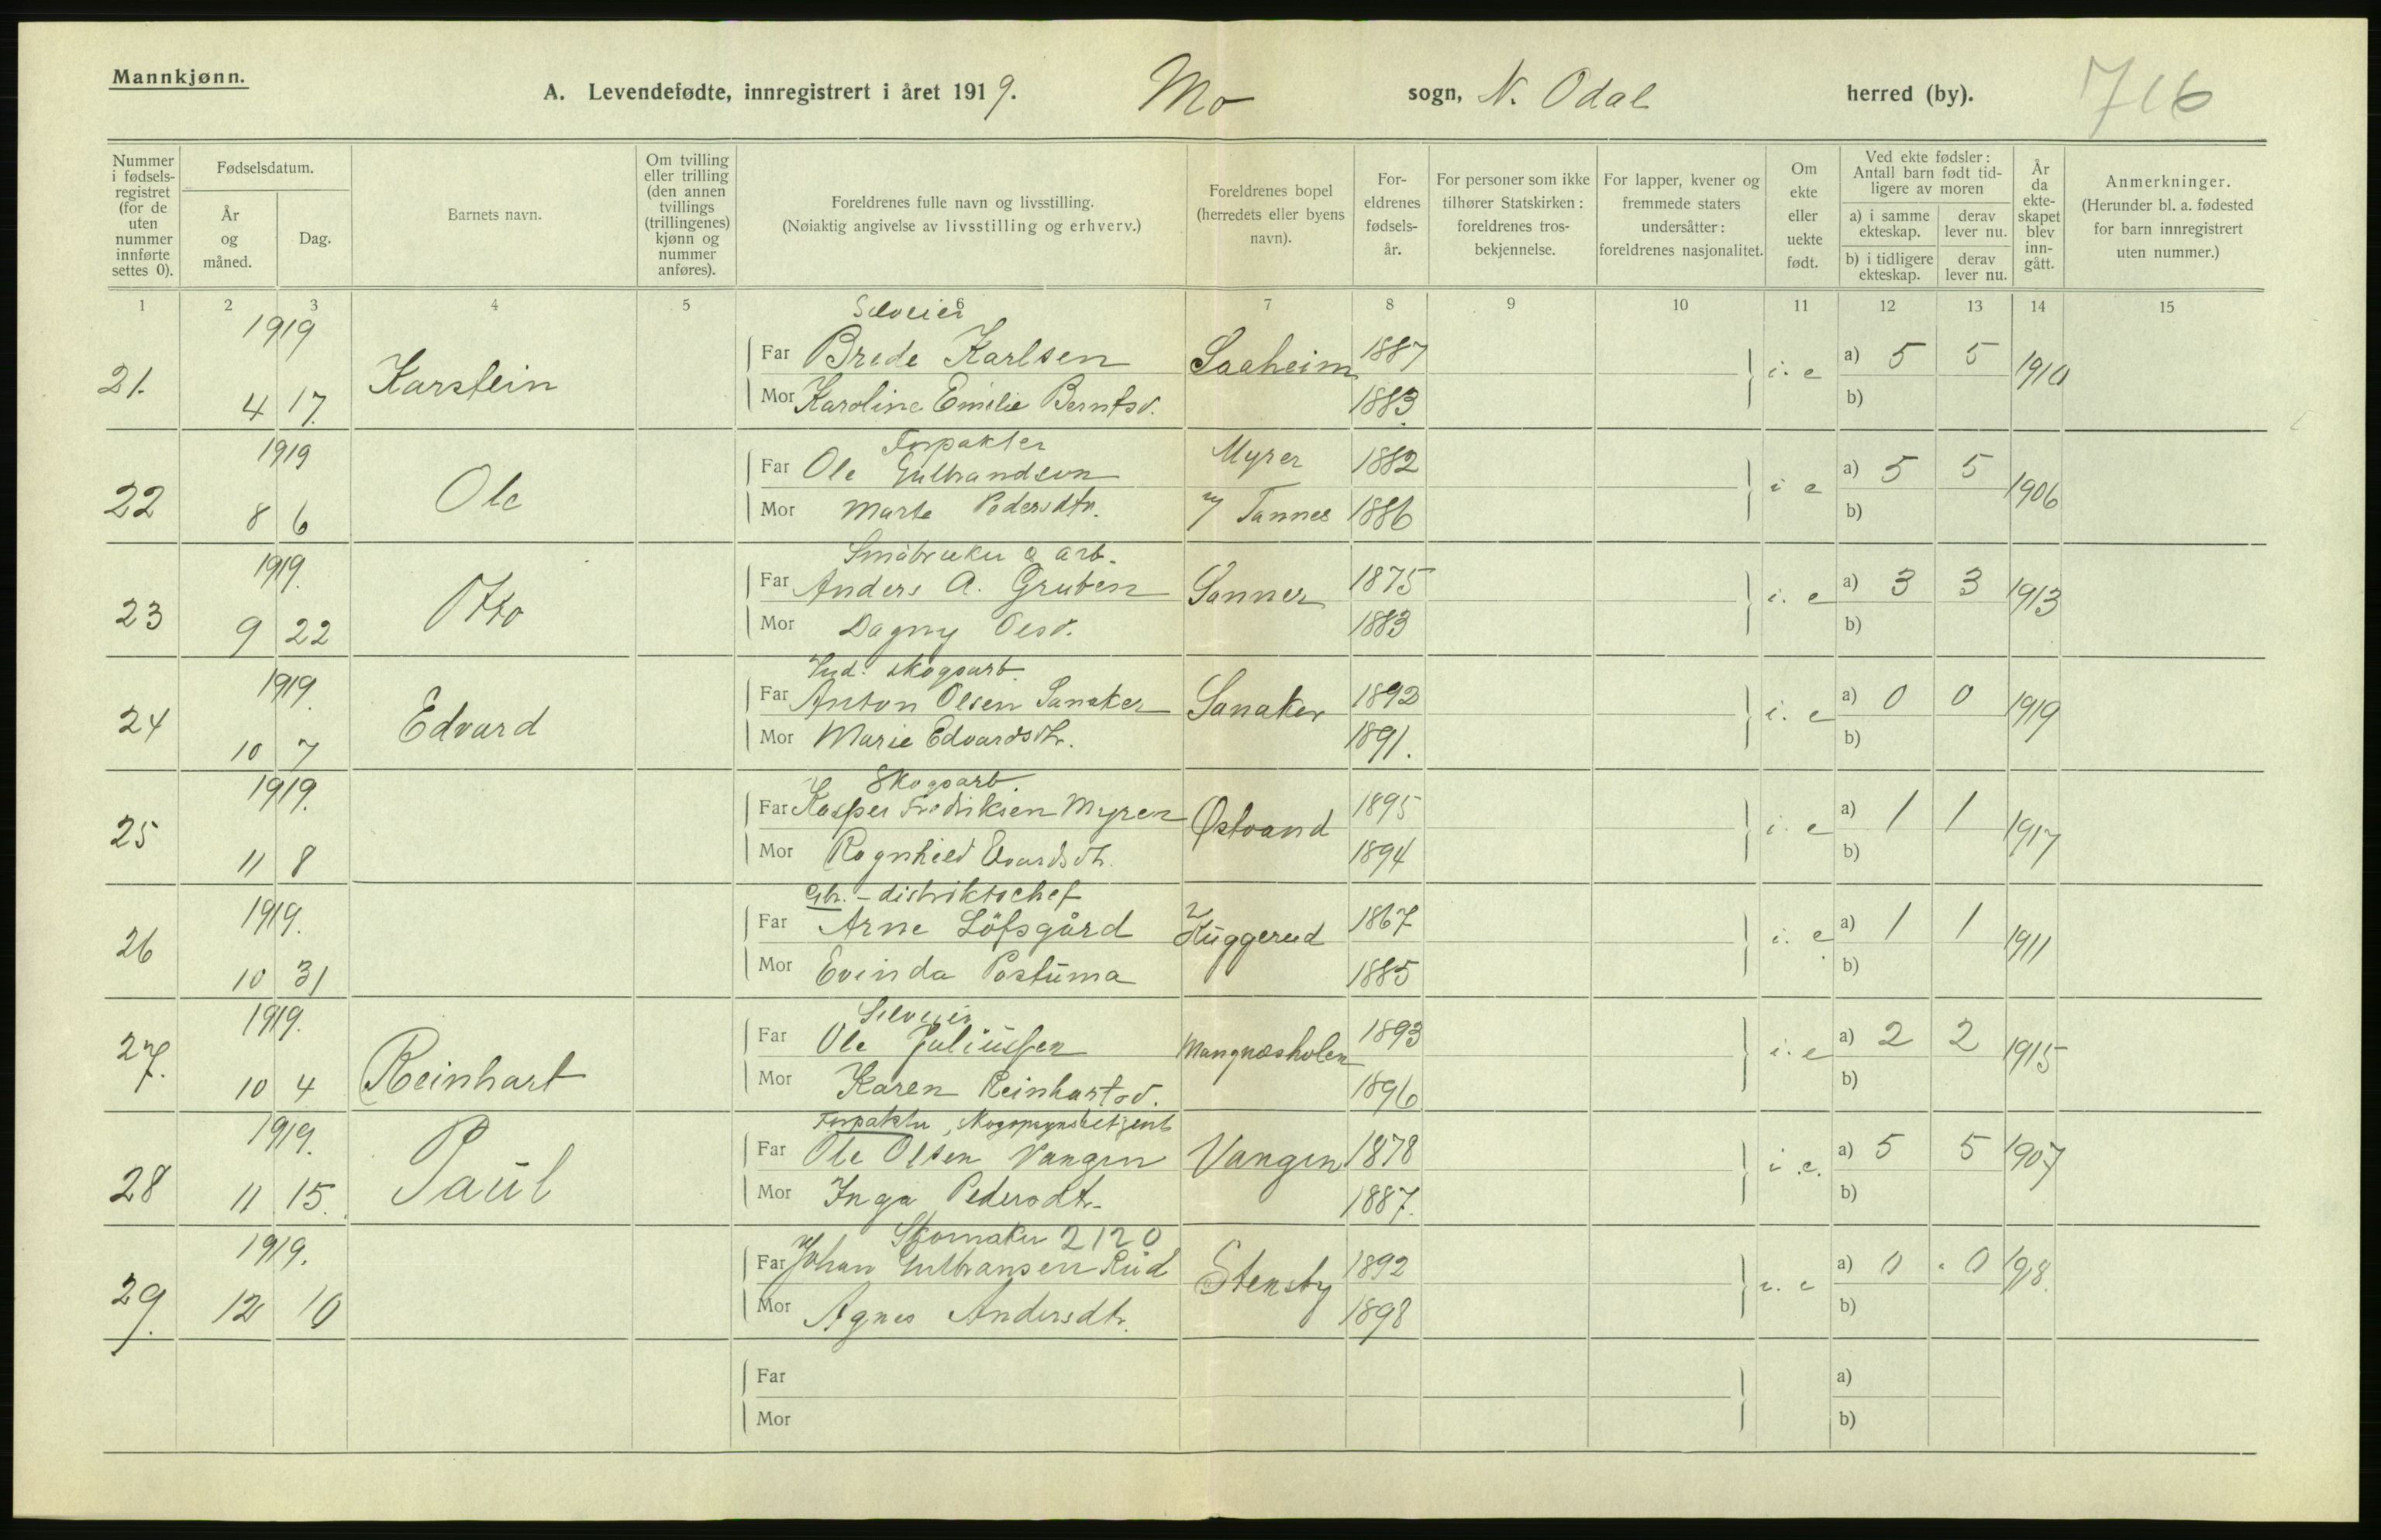 Mannkjønn.
A. Levendefødte, innregistrert i året 1919. Mo sogn, N. Odal herred (by). 716
Nummer i fødsels-registret (for de uten nummer innførte settes 0).
Fødselsdatum.
År og måned.
Dag.
Barnets navn.
Om tvilling eller trilling (den annen tvillings (trillingenes) kjønn og nummer anføres).
Foreldrenes fulle navn og livsstilling.
(Nøiaktig angivelse av livsstilling og erhverv.)
Foreldrenes bopel (herredets eller byens navn).
For-eldrenes fødsels-år.
For personer som ikke tilhører Statskirken: foreldrenes tros-bekjennelse.
For lapper, kvener og fremmede staters undersåtter: foreldrenes nasjonalitet.
Om ekte eller uekte født.
Ved ekte fødsler: Antall barn født tid-ligere av moren
a) i samme ekteskap. derav lever nu.
b) i tidligere ekteskap. derav lever nu.
År da ekte-skapet blev inn-gått.
Anmerkninger.
(Herunder bl. a. fødested for barn innregistrert uten nummer.)
1 2 3 4 5 6 7 8 9 10 11 12 13 14 15
1919 Selveier
21. Karstein Far Brede Karlsen Saaheim 1887 i. e a) 5 5 1910
4 17. Mor Karoline Emilie Berntsd. 1883 b)
1919 Forpakter
22 Ole Far Ole Gulbrandsen Myrer 1882 i e a) 5 5 1906
8 6 Mor Marte Pedersdtr. Tannes 1886 b)
1919. Småbruker o arb.
23 Otto Far Anders A. Gruben Sanner 1875 i. e a) 3 3 1913
9 22 Mor Dagny Olsd. 1883 b)
1919. Ind. skogsarb.
24 Edvard Far Anton Olsen Sanaker Sanaker 1892 i. e a) 0 0 1919
10 7 Mor Marie Edvardsdtr. 1891. b)
1919. Skogsarb.
25 Far Kasper Fredriksen Myren Østvand 1895 i. e a) 1 1 1917
11 8 Mor Ragnhild 1894 b)
1919. - distriktschef
26 Far Arne Löfsgård Kuggerud 1867 i. e a) 1 1 1911
10 31 Mor Evinda Postuma 1885 b)
1919. Selveier
27. Reinhart Far Ole Juliussen Mangnæsholen 1893 i. e a) 2 2 1915
10 4 Mor Karen Reinhartsd. 1896 b)
1919. Forpakter, skogopsynsbetjent
28 Paul Far Ole Olsen Vangen Vangen 1878 i. e. a) 5 5 1907
11 15. Mor Inga Pedersdtr. 1887. b)
1919. Skomaker 2120
29. Far Johan Gulbransen Rud Stensby 1892 i. e a) 0 0 1918.
12 10 Mor Agnes Andersdtr. 1898 b)
Far a)
Mor b)